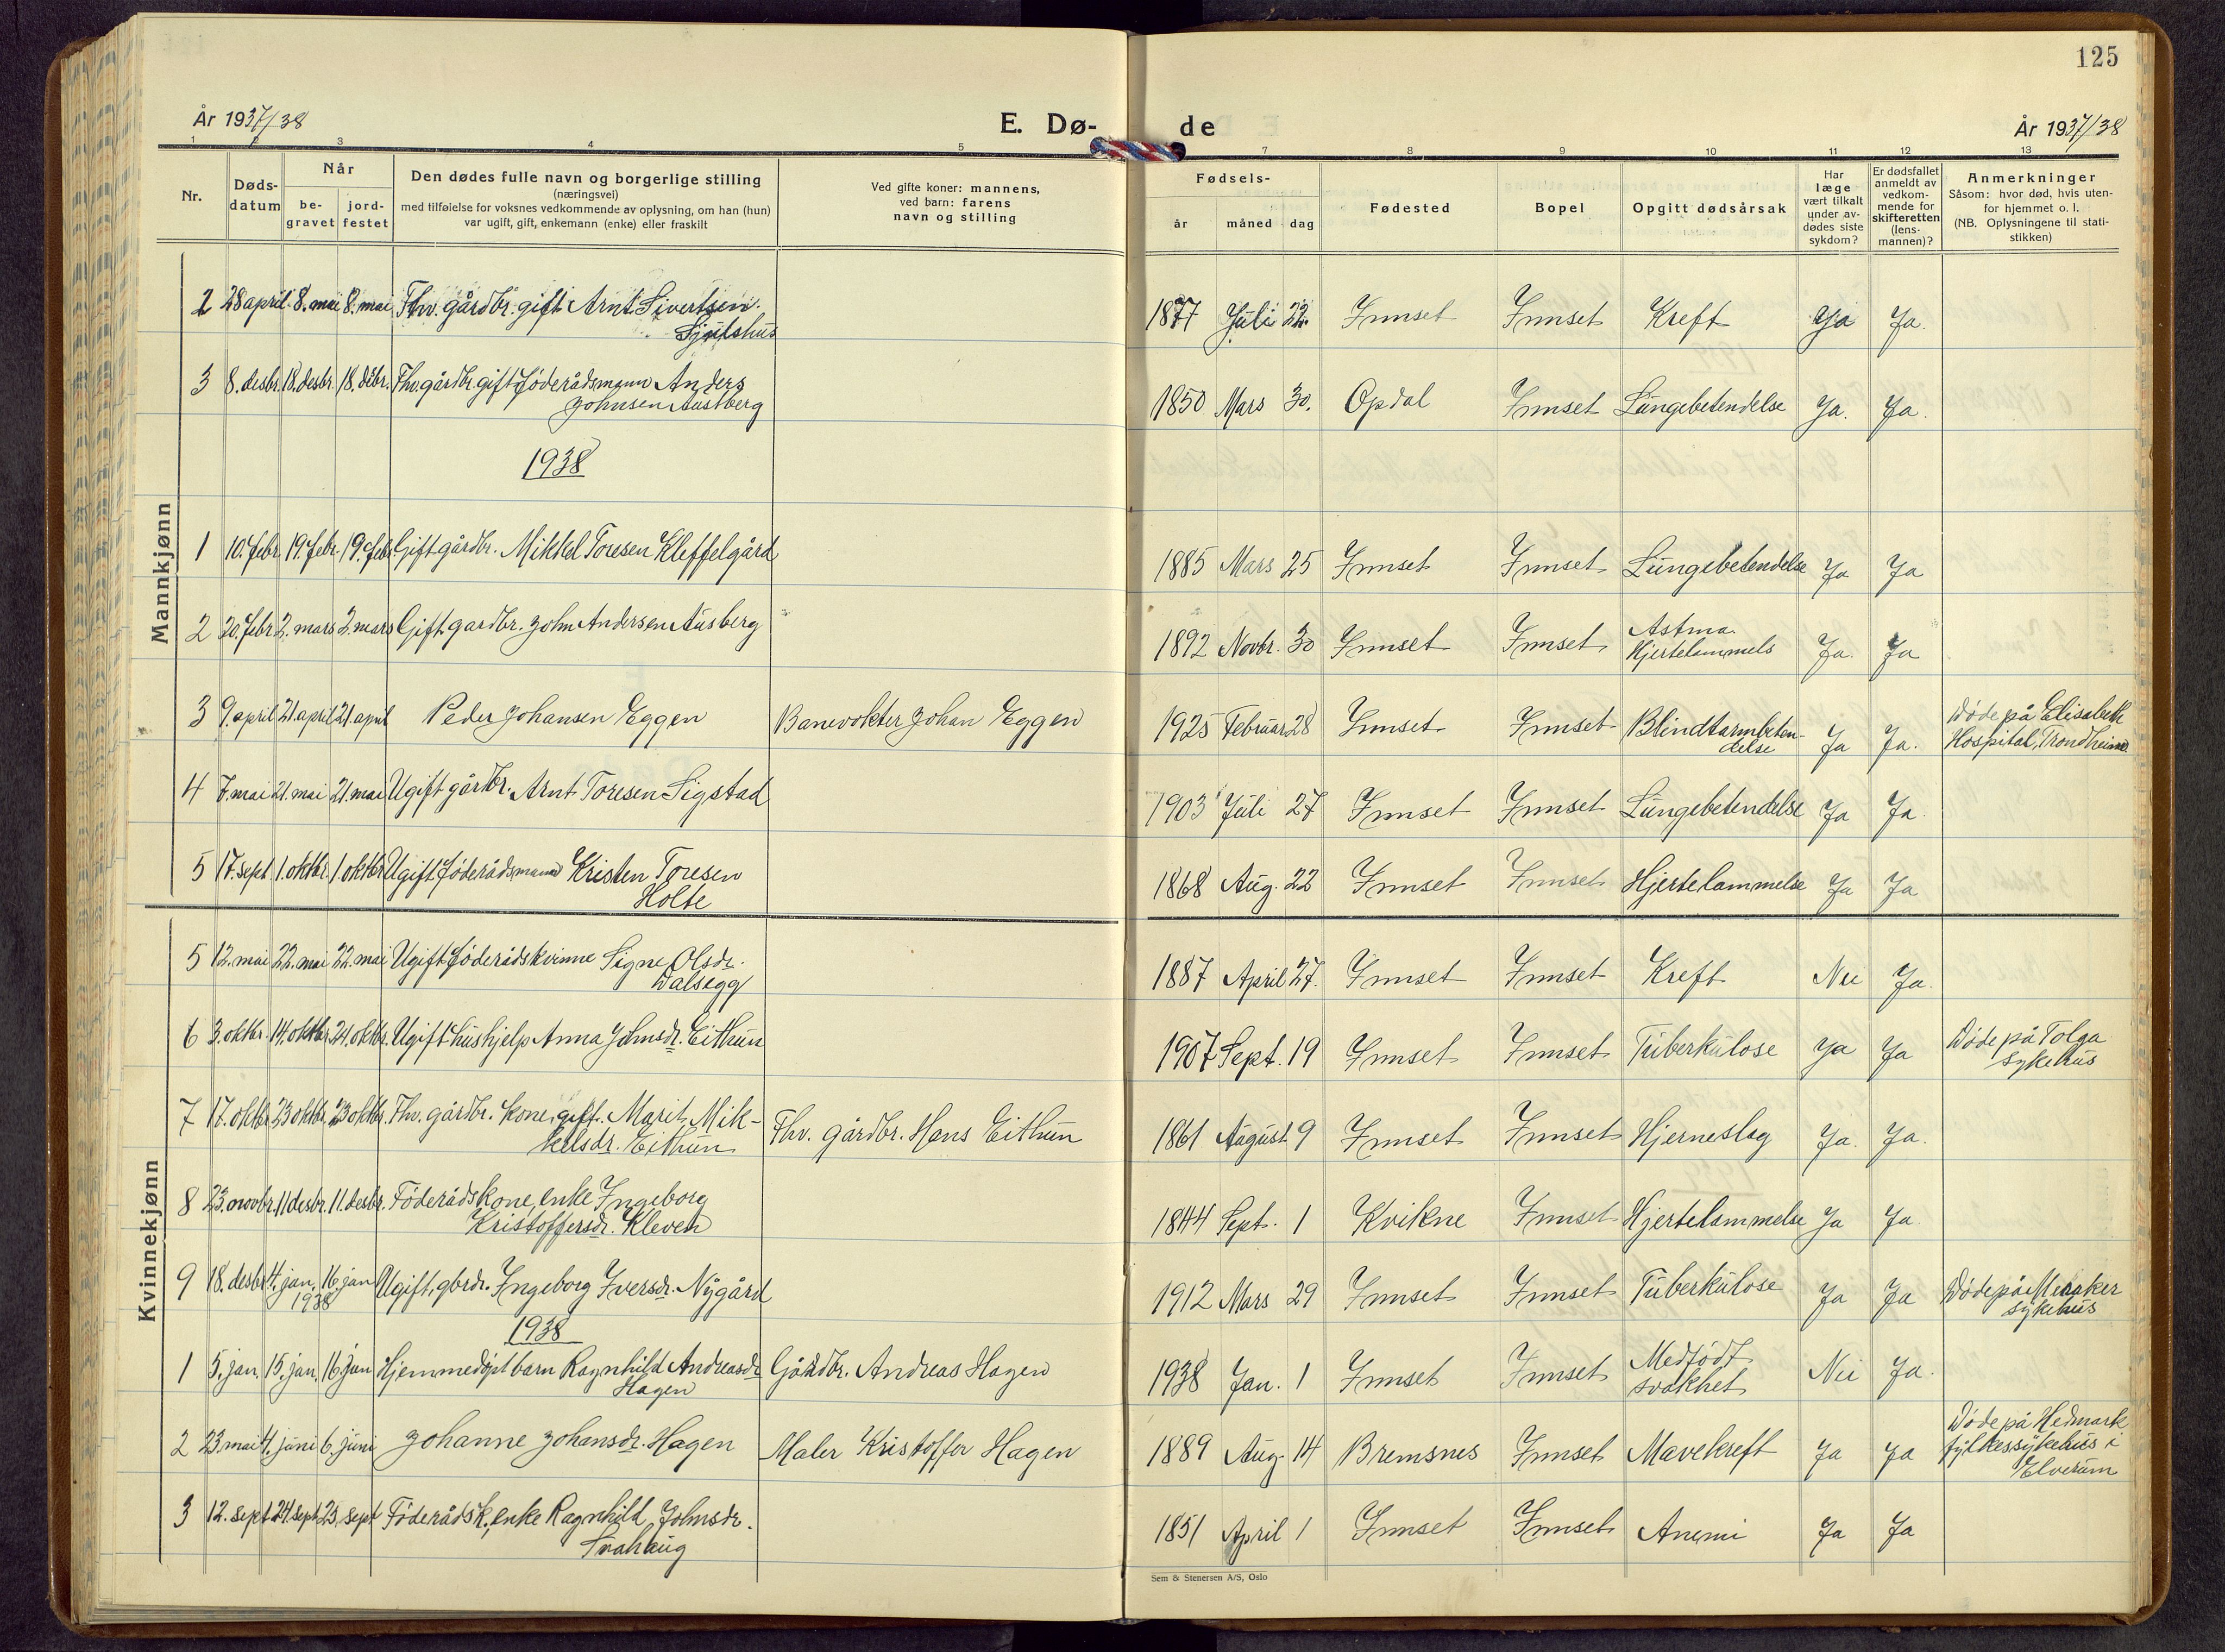 125
År 1937/38
E. Dø- de
År 1937/38
1 2 3 4 5 7 8 9 10 11 12 13
Nr.
Døds-
datum
Når
be-
gravet
jord-
festet
Den dødes fulle navn og borgerlige stilling
(næringsvei)
med tilføielse for voksnes vedkommende av oplysning, om han (hun)
var ugift, gift, enkemann (enke) eller fraskilt
Ved gifte koner: mannens,
ved barn: farens
navn og stilling
Fødsels-
år måned dag
Fødested
Bopel
Opgitt dødsårsak
Har
læge
vært tilkalt
under av-
dødes siste
sykdom?
Er dødsfallet
anmeldt av
vedkom-
mende for
skifteretten
(lens-
mannen)?
Anmerkninger
Såsom: hvor død, hvis uten-
for hjemmet o. l.
(NB. Oplysningene til stati-
stikken)
Mannkjønn
2 28 april 8. mai 8. mai Fhv. gårdbr. gift Arnt Sivertsen 1877 Juli 22. Innset Innset Kreft Ja Ja.
3 8. desbr. 18. desbr. 18. debr. Fhv. gårdbr. gift føderådsmann Anders
Johnsen Austberg 1850 Mars 30. Opdal Innset Lungebetendelse Ja. Ja.
1938
1 10. febr. 19. febr. 19. febr. Gift gårdbr. Mikkel Toresen Kleffelgård 1885 Mars 25 Innset Innset Lungebetendelse Ja Ja
2 20. febr 2. mars 2. mars Gift gardbr. John Andersen Ausberg 1892 Novbr. 30 Innset Innset Astma
Hjertelammels Ja. Ja
3 9. april 21. april 21. april Peder Johansen Eggen Banevokter Johan Eggen 1925 Februar 28 Innset Innset Blindtarmbeten-
delse Ja Ja. Døde på Elisabeth
Hospital, Trondheim
4 7. mai 21. mai 21. mai Ugift gårdbr. Arnt Toresen Sigstad 1903 Juli 27 Innset Innset Lungebetendelse Ja Ja
5 17. sept. 1. oktbr. 1. oktbr Ugift føderådsmann Kristen Toresen
Holte 1868 Aug. 22 Innset Innset Hjertelammelse Ja Ja
Kvinnekjønn
5 12. mai 22. mai 22. mai Ugift føderådskvinne Signe Olsdr.
Dalsegg 1887 April 27. Innset Innset Kreft Nei Ja.
6 3. oktbr. 14. oktbr. 24. oktbr. Ugift hushjelp Anna Johnsdr. Eithun 1907 Sept. 19 Innset Innset Tuberkulose Ja Ja Døde på Tolga
sykehus
7 17. oktbr 23 oktbr. 23 oktbr Fhv. gårdbr. kone, gift. Marit Mik-
kelsdr. Eithun Fhv. gårdbr. Hans Eithun 1861 August 9 Innset Innset Hjerneslag Ja. Ja.
8 23. novbr. 11 desbr. 11. desbr. Føderådskone, enke Ingeborg
Kristoffersdr. Kleven 1844 Sept. 1 Kvikne Innset Hjertelammelse Ja Ja.
9 18. desbr 4. jan. 1938 16. jan Ugift, gbrdr. Ingeborg Iversdr. Nygård 1912 Mars 29 Innset Innset Tuberkulose Ja Ja Døde på Meraker
sykehus
1938
1 5. jan. 15. jan. 16. jan Hjemmedøpt barn Ragnhild Andreasdr
Hagen Gårdbr. Andreas Hagen 1938 Jan. 1 Innset Innset Medfødt
svakhet Nei Ja.
2 23. mai 4. juni 6. juni Johanne Johansdr. Hagen Maler Kristoffer Hagen 1889 Aug. 14 Bremsnes Innset Mavekreft Ja Ja Døde på Hedmark
fylkessykehus i
Elverum
3 12. sept 24. sept 25. sept Føderådsk., enke Ragnhild Johnsdr. 1851 April 1 Innset Innset Anemi Ja Ja
Sem & Stenersen A/S, Oslo